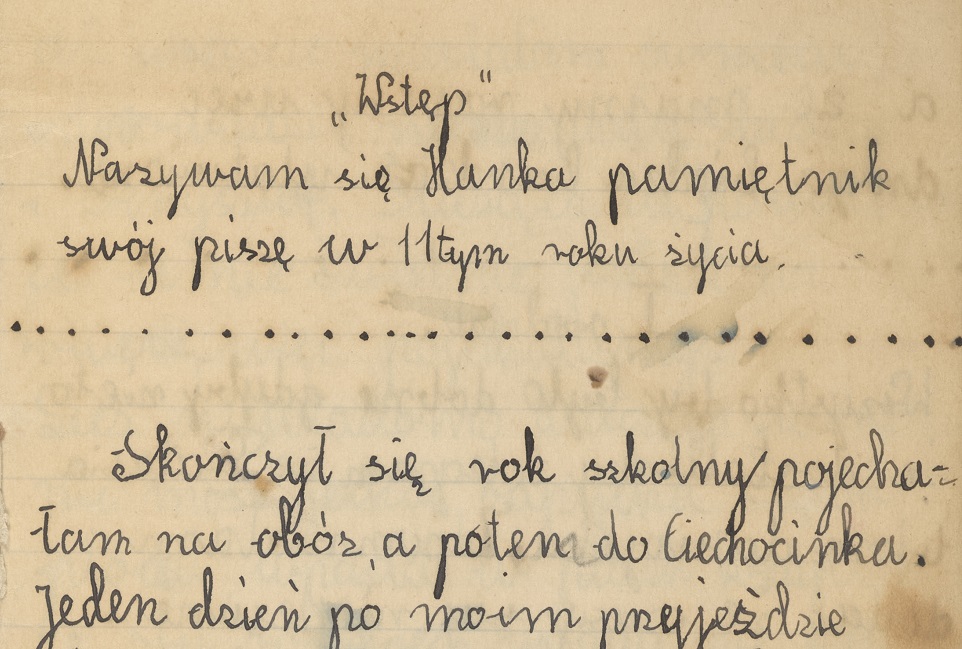 „Wstęp"
Nazywam się Hanka pamiętnik
swój piszę w 11tym roku życia.
Skończył się rok szkolny pojecha=
łam na obóz, a potem do Ciechocinka.
Jeden dzień po moim przyjeździe